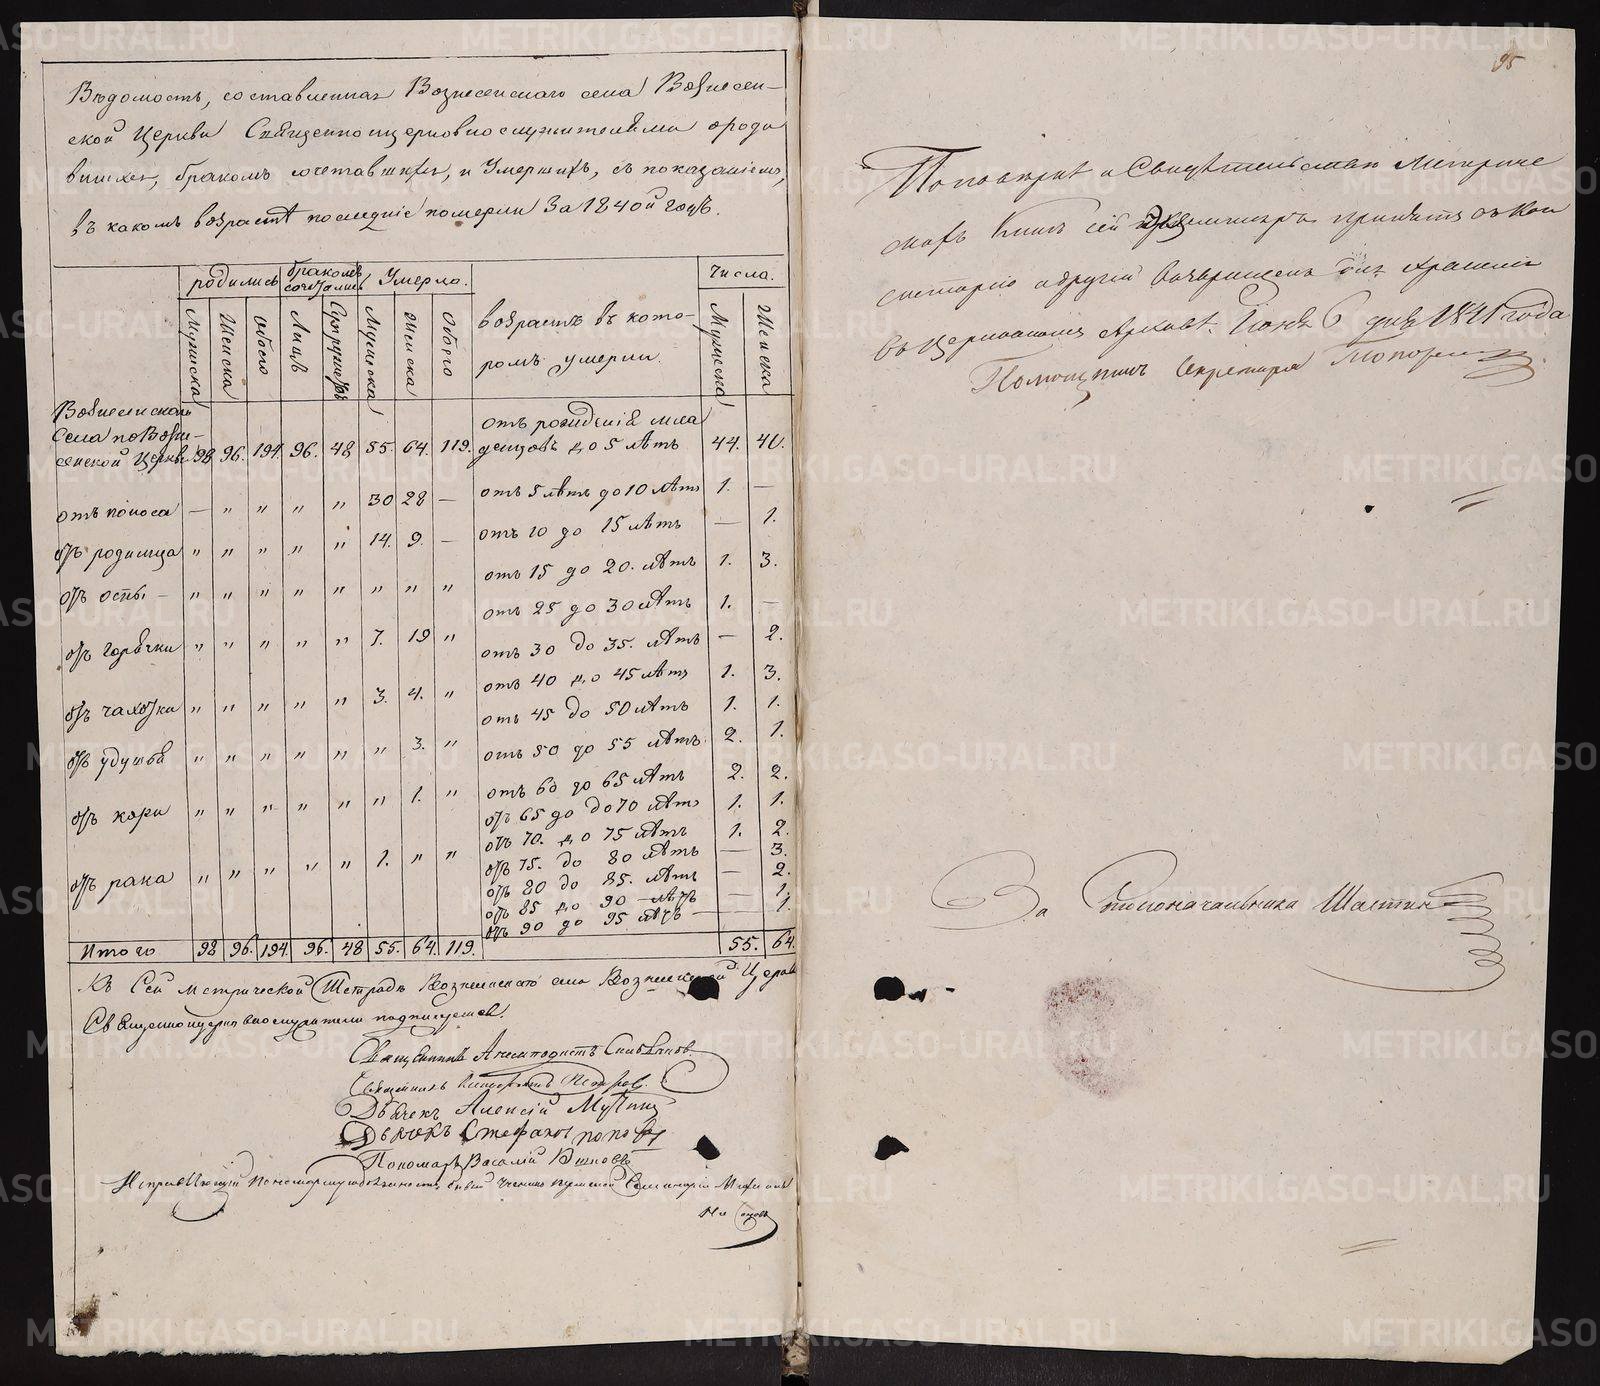 Вѣдомость, составленная Вознесенскаго села Вознесен-
ской Церкви Священноцерковнослужителями о роди
вшихся, бракомъ сочетавшихся, и Умершихъ, съ показаніемъ,
въ какомъ возрастѣ последніе померли За 1840й годъ.
родились
бракомъ сочетались
Умерло.
Мужеска
Женска
обоего
Лицъ
Супружествъ
Мужеска
Женска
Обоего
возрастъ въ кото-
ромъ умерли.
Числа.
Мужеска
Женска
Вознесенскаго
Села по Возне-
сенской Церкви 98 96. 194. 96. 48 55. 64. 119.
отъ рожденія мла
денцовъ до 5 лѣтъ 44. 40.
отъ поноса — " " " " 30 28 —
отъ 5 лѣтъ до 10 лѣтъ 1. —
отъ 10 до 15 лѣтъ — 1.
отъ родимца " " " " " 14. 9. —
отъ 15 до 20. лѣтъ 1. 3.
отъ оспы — " " " " " " " "
отъ 25 до 30 лѣтъ 1. —
отъ горячки " " " " " 7. 19 "
отъ 30 до 35. лѣтъ — 2.
отъ 40 до 45 лѣтъ 1. 3.
отъ чахотки " " " " " 3. 4. "
отъ 45 до 50 лѣтъ 1. 1.
отъ удушья " " " " " " 3. "
отъ 50 до 55 лѣтъ 2. 1.
отъ 60 до 65 лѣтъ 2. 2.
отъ кори " " " " " " 1. "
отъ 65 до до 70 лѣтъ 1. 1.
отъ 70. до 75 лѣтъ 1. 2.
отъ рака " " " " " 1. " "
отъ 75. до 80 лѣтъ — 3.
отъ 80 до 85. лѣтъ — 2.
отъ 85 до 90 лѣтъ — 1.
отъ 90 до 95 лѣтъ — 1.
Итого 98 96. 194. 96. 48 55. 64. 119. 55. 64.
Къ Сей метрической Тетради Вознесенскаго села Вознесенской Церкви
Священноцерковнослужители подписуемся.
Священникъ
Священникъ
Дьячекъ Алексій
Дьячекъ Стефанъ Поповъ
Пономарь Василій
Исправляющій Пономарскую должность
95
По повѣркѣ и Свидѣтельствѣ Метриче
скихъ Книгъ сей Экземпляръ принятъ въ Кон
систорію а другій возвращенъ для храненія
въ Церковномъ Архивѣ. Іюня 6 дня 1841 года
Помощникъ Секретаря Топорковъ
За Столоначальника Шастинъ
METRIKI.GASO-URAL.RU